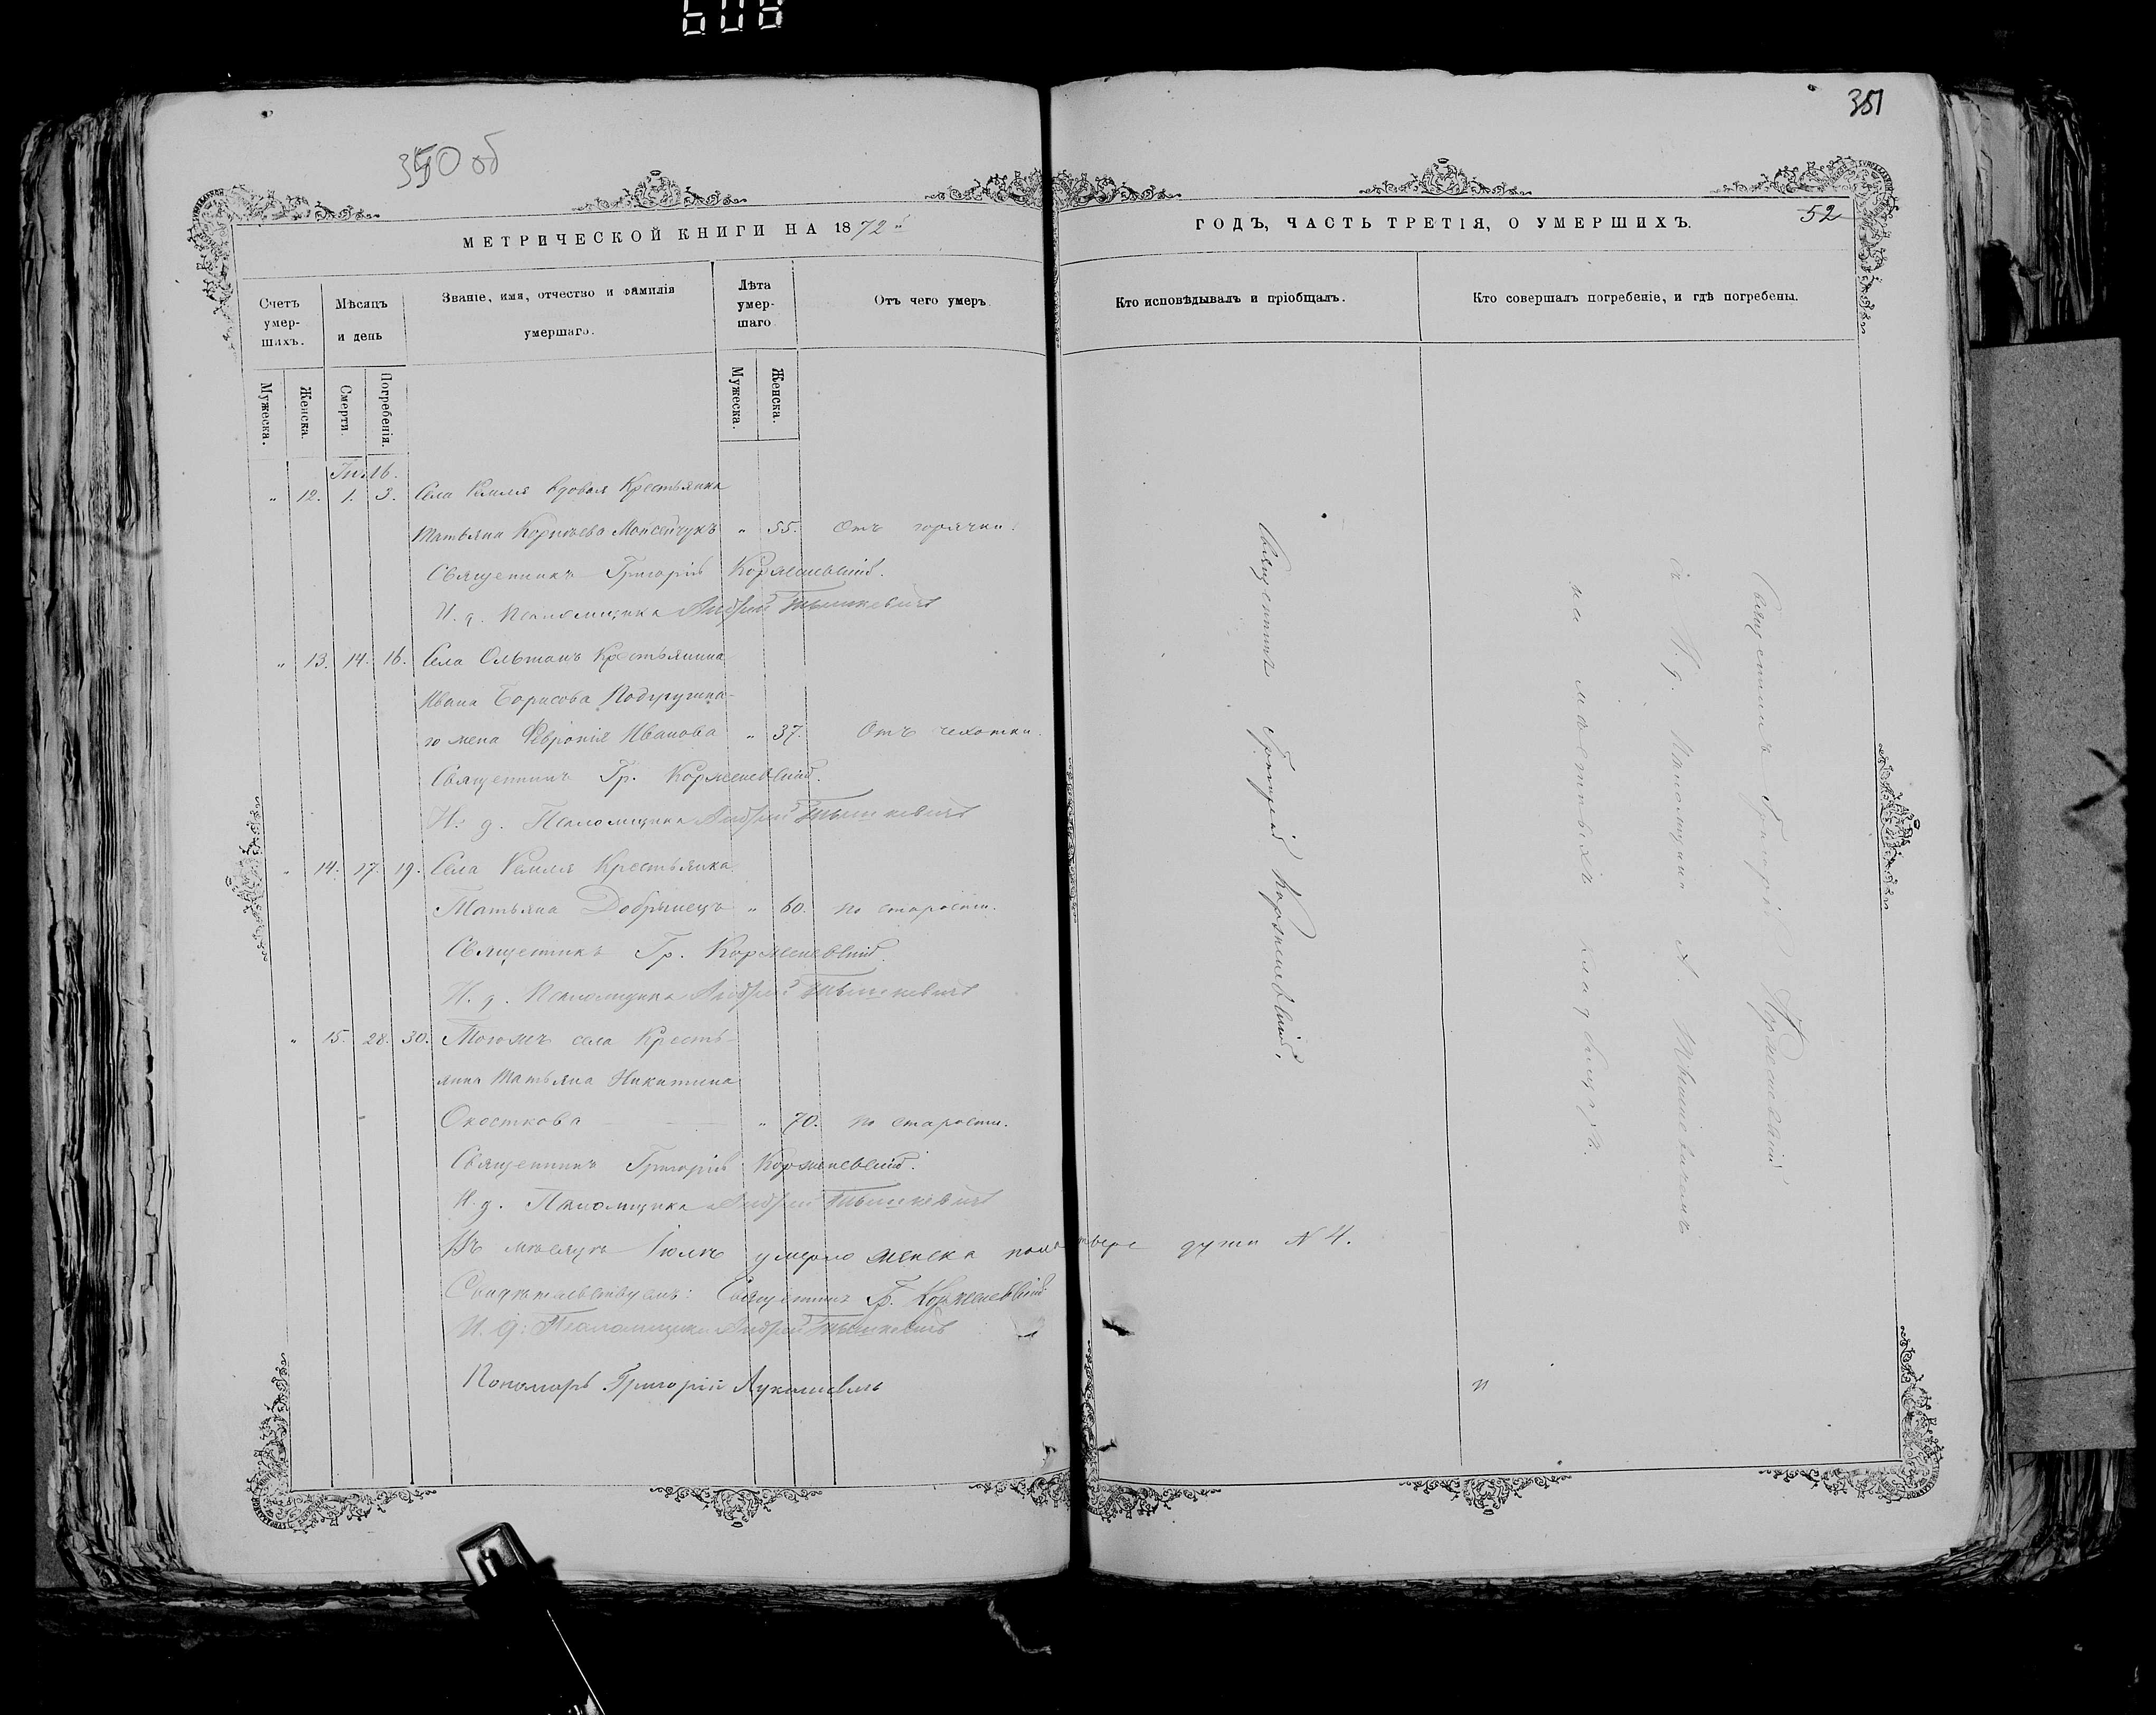 608
351
350 об
МЕТРИЧЕСКОЙ КНИГИ НА 1872й
ГОДЪ, ЧАСТЬ ТРЕТІЯ, О УМЕРШИХЪ.
52
Счетъ умер-шихъ.
Мѣсяцъ и день
Званіе, имя, отчество и фамилія умершаго.
Лѣта умер-шаго
Отъ чего умеръ
Кто исповѣдывалъ и пріобщалъ.
Кто совершалъ погребеніе, и гдѣ погребены.
Мужеска.
Женска.
Смерти.
Погребенія.
Мужеска.
Женска.
" 12. 1. 3. Села вдовая Крестьянка
Татьяна " 55. Отъ горячки.
Священникъ Григорій Корженевскій.
И. д. Псаломщика Андрей Тышкевичъ
" 13. 14. 16. Села Крестьянина
Ивана Борисова
жена Февронія Иванова " 37. Отъ чахотки.
Священникъ Гр. Корженевскій.
И. д. Псаломщика Андрей Тышкевичъ
" 14. 17. 19. Села Крестьянка
Татьяна Добрынецъ " 60. по старости.
Священникъ Гр. Корженевскій.
И. д. Псаломщика Андрей Тышкевичъ
" 15. 28. 30. Тогожъ села Кресть-
янка Татьяна Никитина
" 70. по старости.
Священникъ Григорій Корженевскій.
И. д. Псаломщика Андрей Тышкевичъ
Въ мѣсяцѣ умерло женска пола душ N 4.
Свидѣтельствуемъ: Священникъ Гр. Корженевскій
И. д. Псаломщика Андрей Тышкевичъ
Пономарь Григорій
Священникъ Григорій Корженевскій.
Священникъ Григорій Корженевскій
съ И. д. Псаломщика А. Тышкевичемъ
на кладбищѣ.